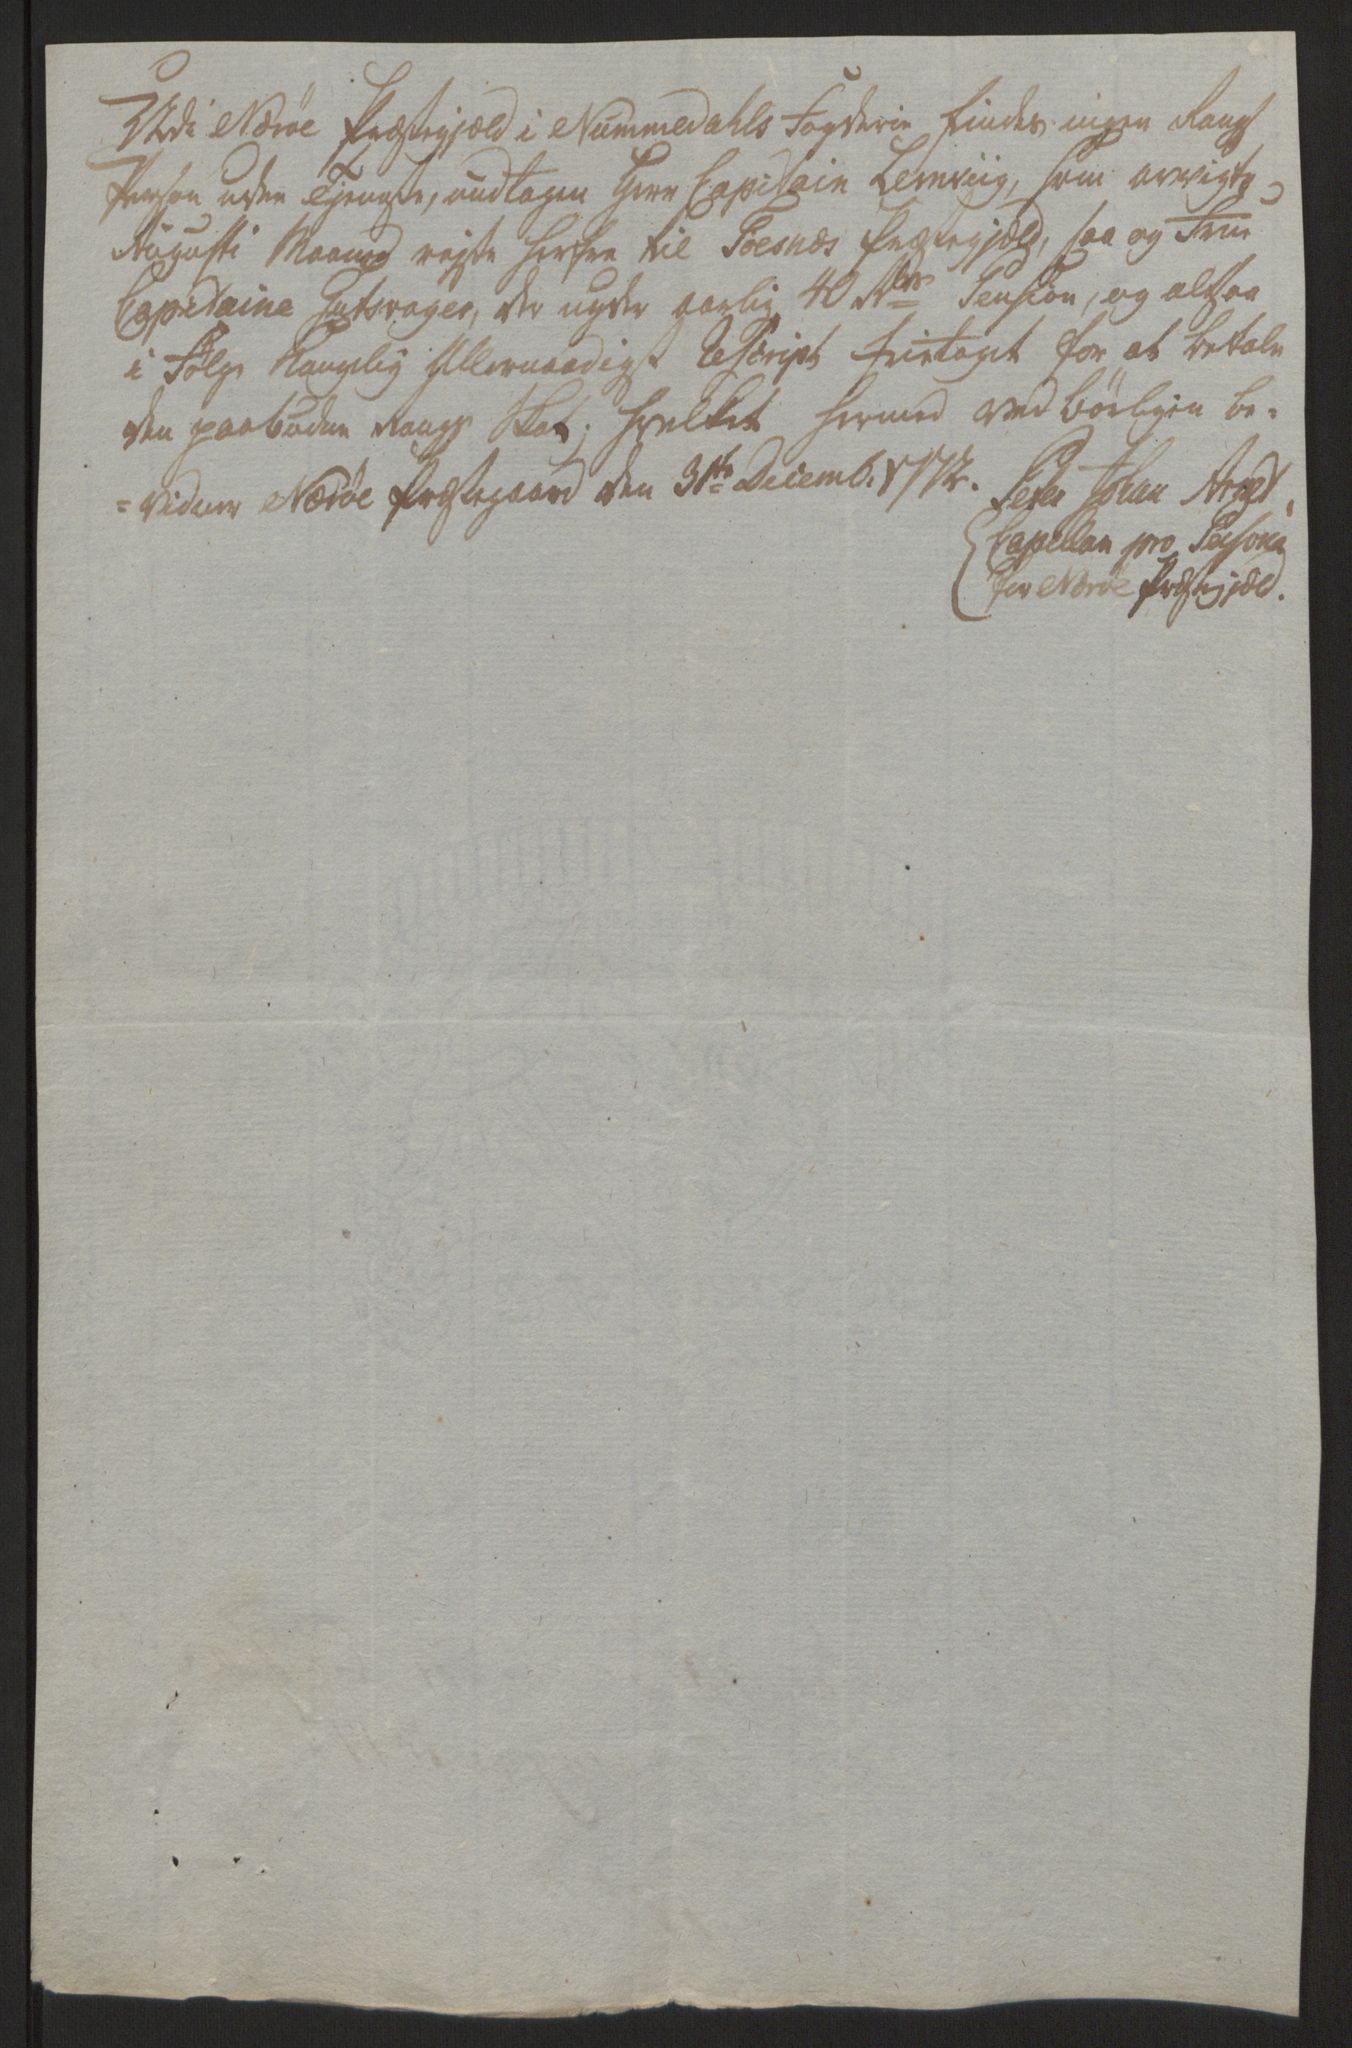 Udi Nærøe Præstegjæld i Nummedahls Fogderie findes ingen Rangs
Person uden Tjeneste, undtagen Herr Capitain Lemviig, som avvigte
Augusti Maaned rejste herfra til Foesnæs Præstegjæld, saa og Frue
Capitaine, der nyder aarlig 40 Rdr Pension, og altsaa
i Følge Kongelig Allernaadigst Rescript fritaget for at betale
den paabudne Rangs Skat; hvilket hermed ved børligen be-
=vidner Nærøe Præstegaard den 31te Decemb: 1772.
Peter Johan Arndt,
Capellan pro Persona
for Nærøe Præstegjæld.